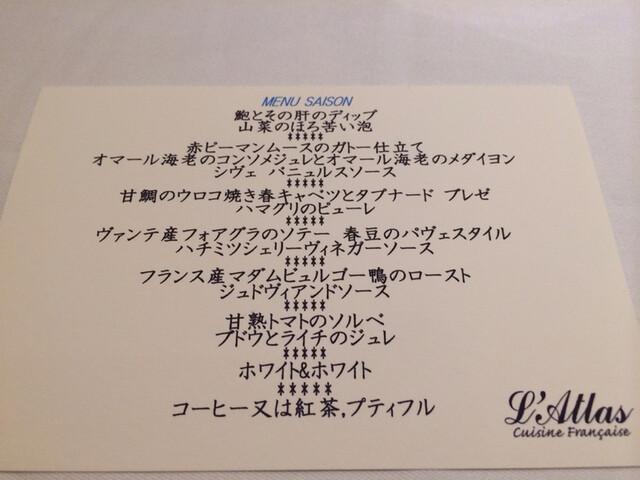 MENU SAISON
鮑とその肝のディップ
山菜のほろ苦い泡
*****
赤ピーマンムースのガトー仕立て
オマール海老のコンソメジュレとオマール海老のメダイヨン
シヴェ バニュルスソース
*****
甘鯛のウロコ焼き春キャベツとタプナード ブレゼ
ハマグリのピューレ
*****
ヴァンテ産フォアグラのソテー 春豆のパヴェスタイル
ハチミツシェリーヴィネガーソース
*****
フランス産マダムビュルゴー鴨のロースト
ジュドヴィアンドソース
*****
甘熟トマトのソルベ
ブドウとライチのジュレ
*****
ホワイト&ホワイト
*****
コーヒー又は紅茶,プティフル
L'Atlas
Cuisine Française